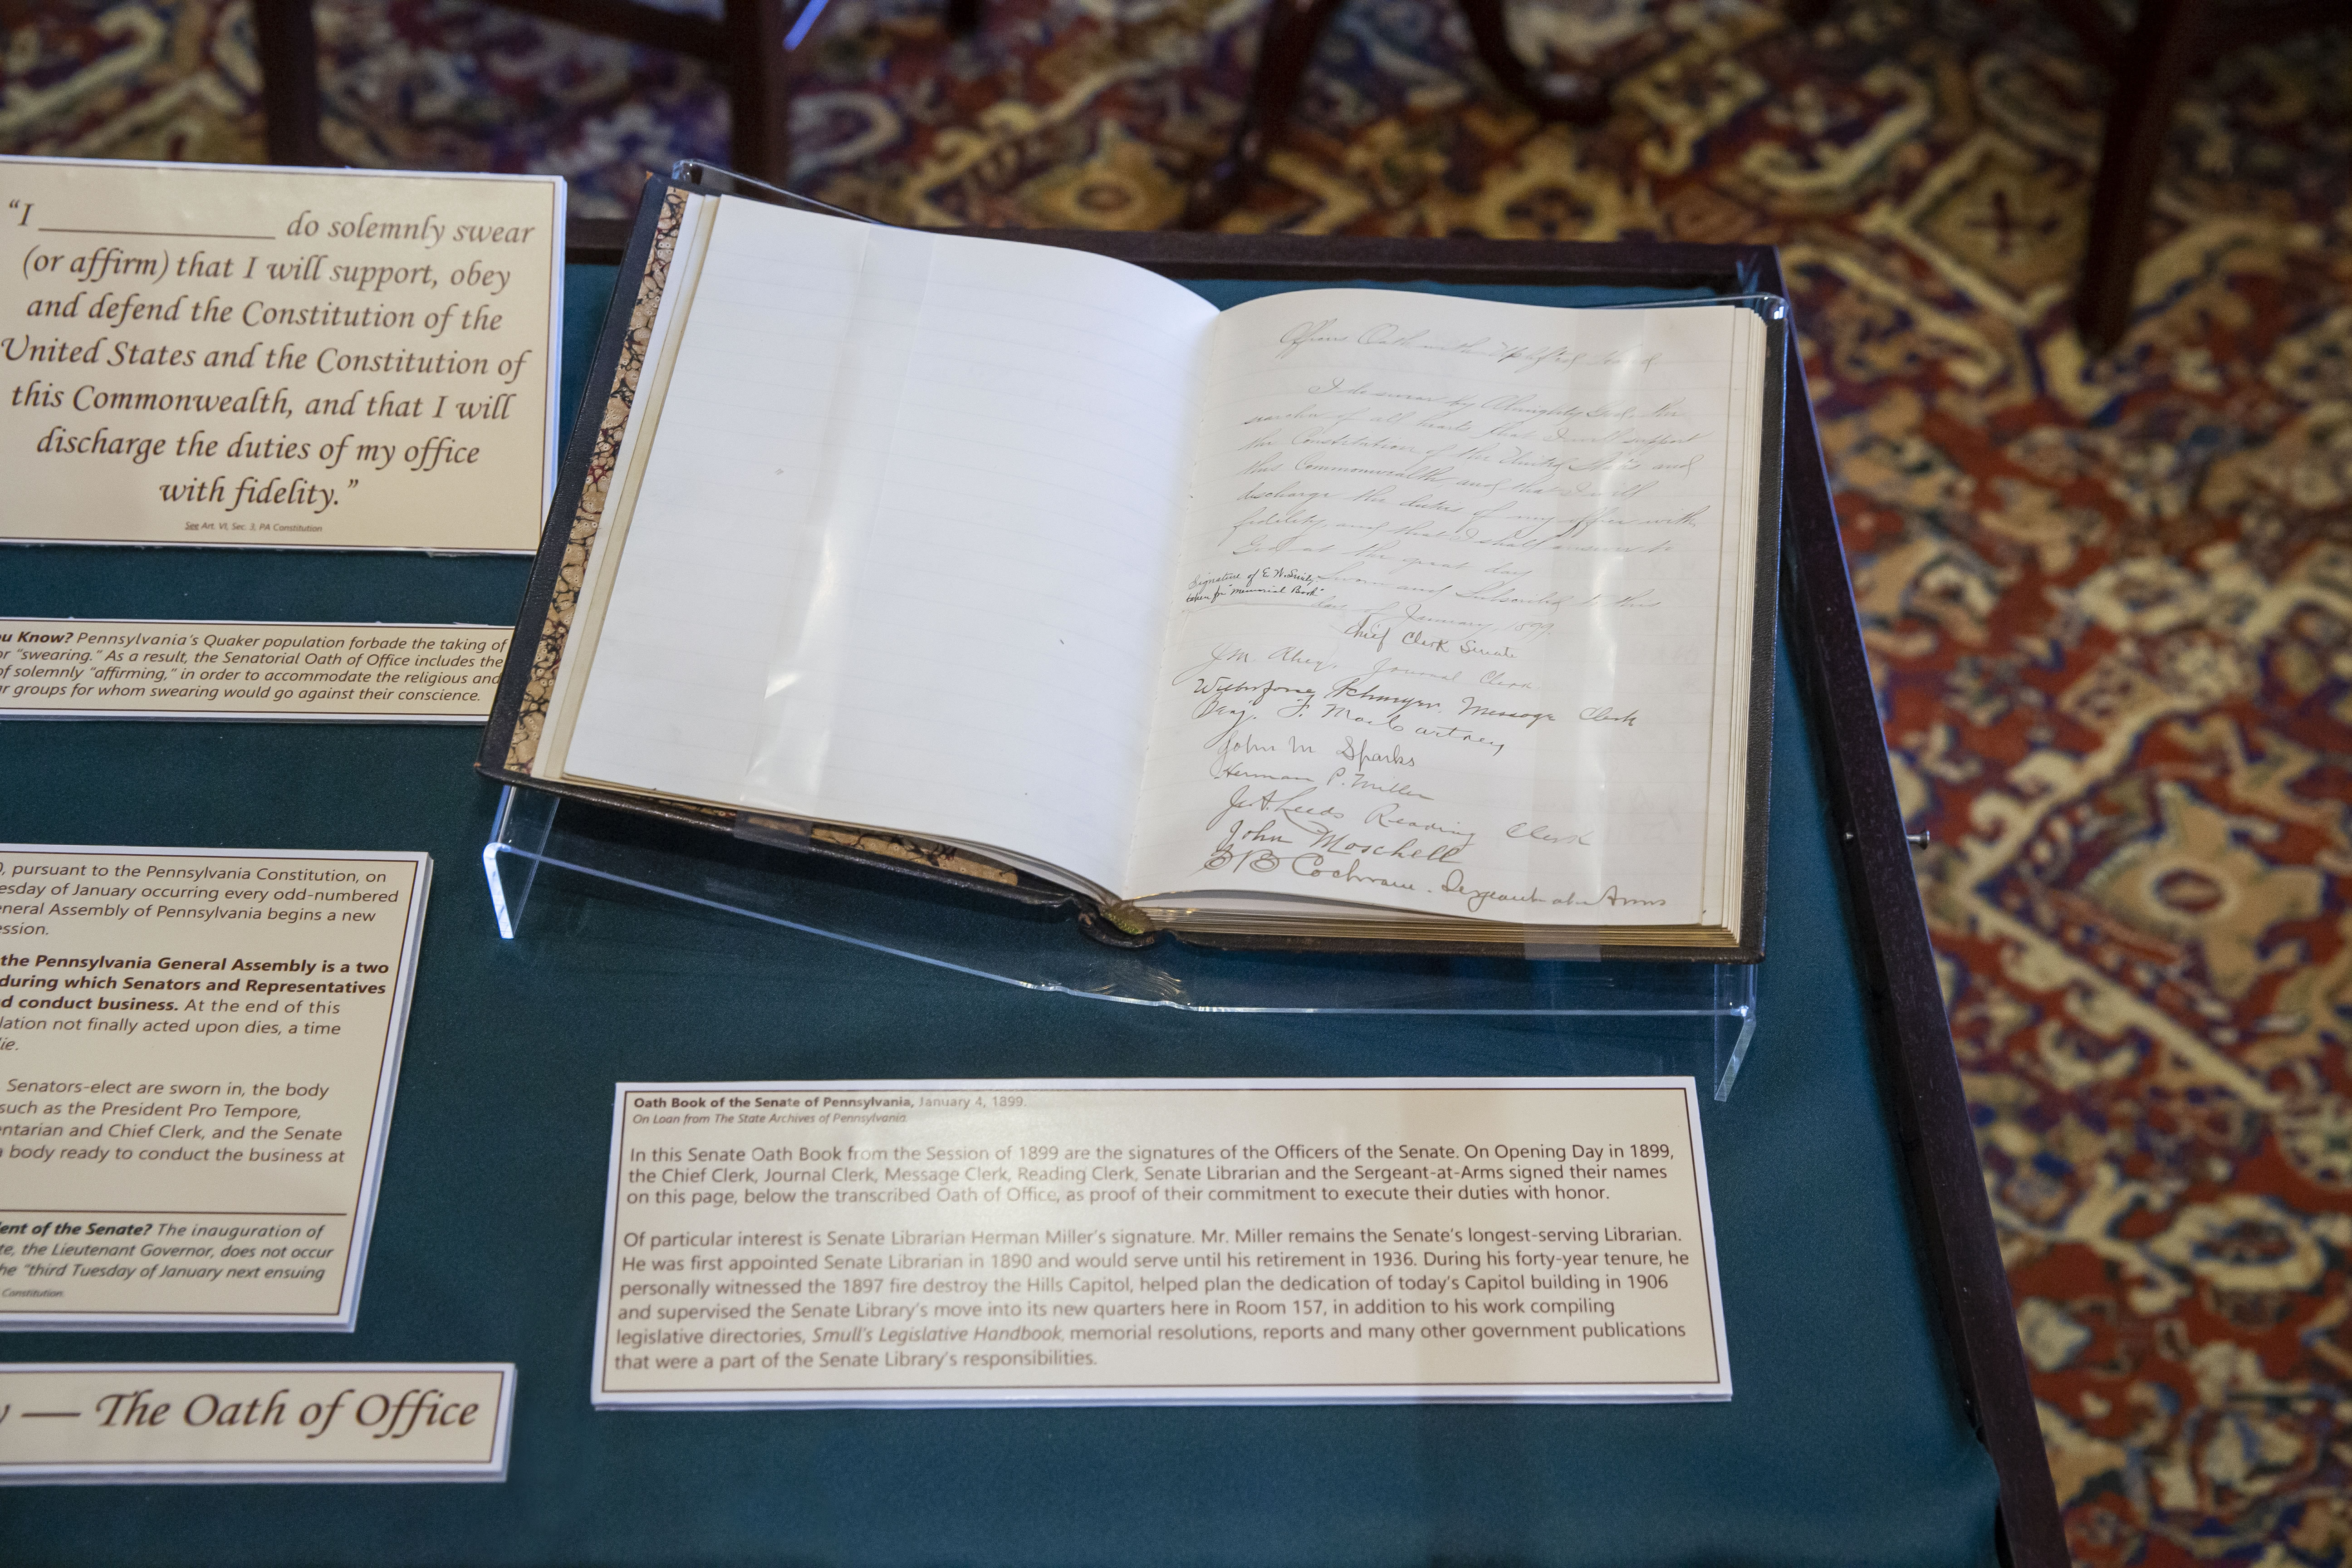 “I ____________ do solemnly swear
(or affirm) that I will support, obey
and defend the Constitution of the
United States and the Constitution of
this Commonwealth, and that I will
discharge the duties of my office
with fidelity.”
See Art. VI, Sec. 3, PA Constitution
u Know? Pennsylvania’s Quaker population forbade the taking of
or “swearing.” As a result, the Senatorial Oath of Office includes the
of solemnly “affirming,” in order to accommodate the religious and
r groups for whom swearing would go against their conscience.
0, pursuant to the Pennsylvania Constitution, on
esday of January occurring every odd-numbered
eneral Assembly of Pennsylvania begins a new
ession.
the Pennsylvania General Assembly is a two
during which Senators and Representatives
d conduct business. At the end of this
lation not finally acted upon dies, a time
ie.
Senators-elect are sworn in, the body
such as the President Pro Tempore,
entarian and Chief Clerk, and the Senate
a body ready to conduct the business at
ent of the Senate? The inauguration of
te, the Lieutenant Governor, does not occur
he “third Tuesday of January next ensuing
Constitution.
— The Oath of Office
Officers Oath with
I do swear by Almighty God, the
searcher of all hearts that I will support
the Constitution of the United States and
this Commonwealth and that I will
discharge the duties of my office with
fidelity and that I shall answer to
God at the great day
Signature of E. W. Smiley
taken for "Memorial Book"
Sworn and Subscribed to this
day of January, 1899.
Chief Clerk Senate
J.M. Journal Clerk
Message Clerk
Benj. F. MacCartney
John M Sparks
Herman P. Miller
J. A. Leeds Reading Clerk
John Moschell
Cochran. Sergeant at Arms
Oath Book of the Senate of Pennsylvania, January 4, 1899.
On Loan from The State Archives of Pennsylvania.
In this Senate Oath Book from the Session of 1899 are the signatures of the Officers of the Senate. On Opening Day in 1899,
the Chief Clerk, Journal Clerk, Message Clerk, Reading Clerk, Senate Librarian and the Sergeant-at-Arms signed their names
on this page, below the transcribed Oath of Office, as proof of their commitment to execute their duties with honor.
Of particular interest is Senate Librarian Herman Miller’s signature. Mr. Miller remains the Senate’s longest-serving Librarian.
He was first appointed Senate Librarian in 1890 and would serve until his retirement in 1936. During his forty-year tenure, he
personally witnessed the 1897 fire destroy the Hills Capitol, helped plan the dedication of today’s Capitol building in 1906
and supervised the Senate Library’s move into its new quarters here in Room 157, in addition to his work compiling
legislative directories, Smull’s Legislative Handbook, memorial resolutions, reports and many other government publications
that were a part of the Senate Library’s responsibilities.